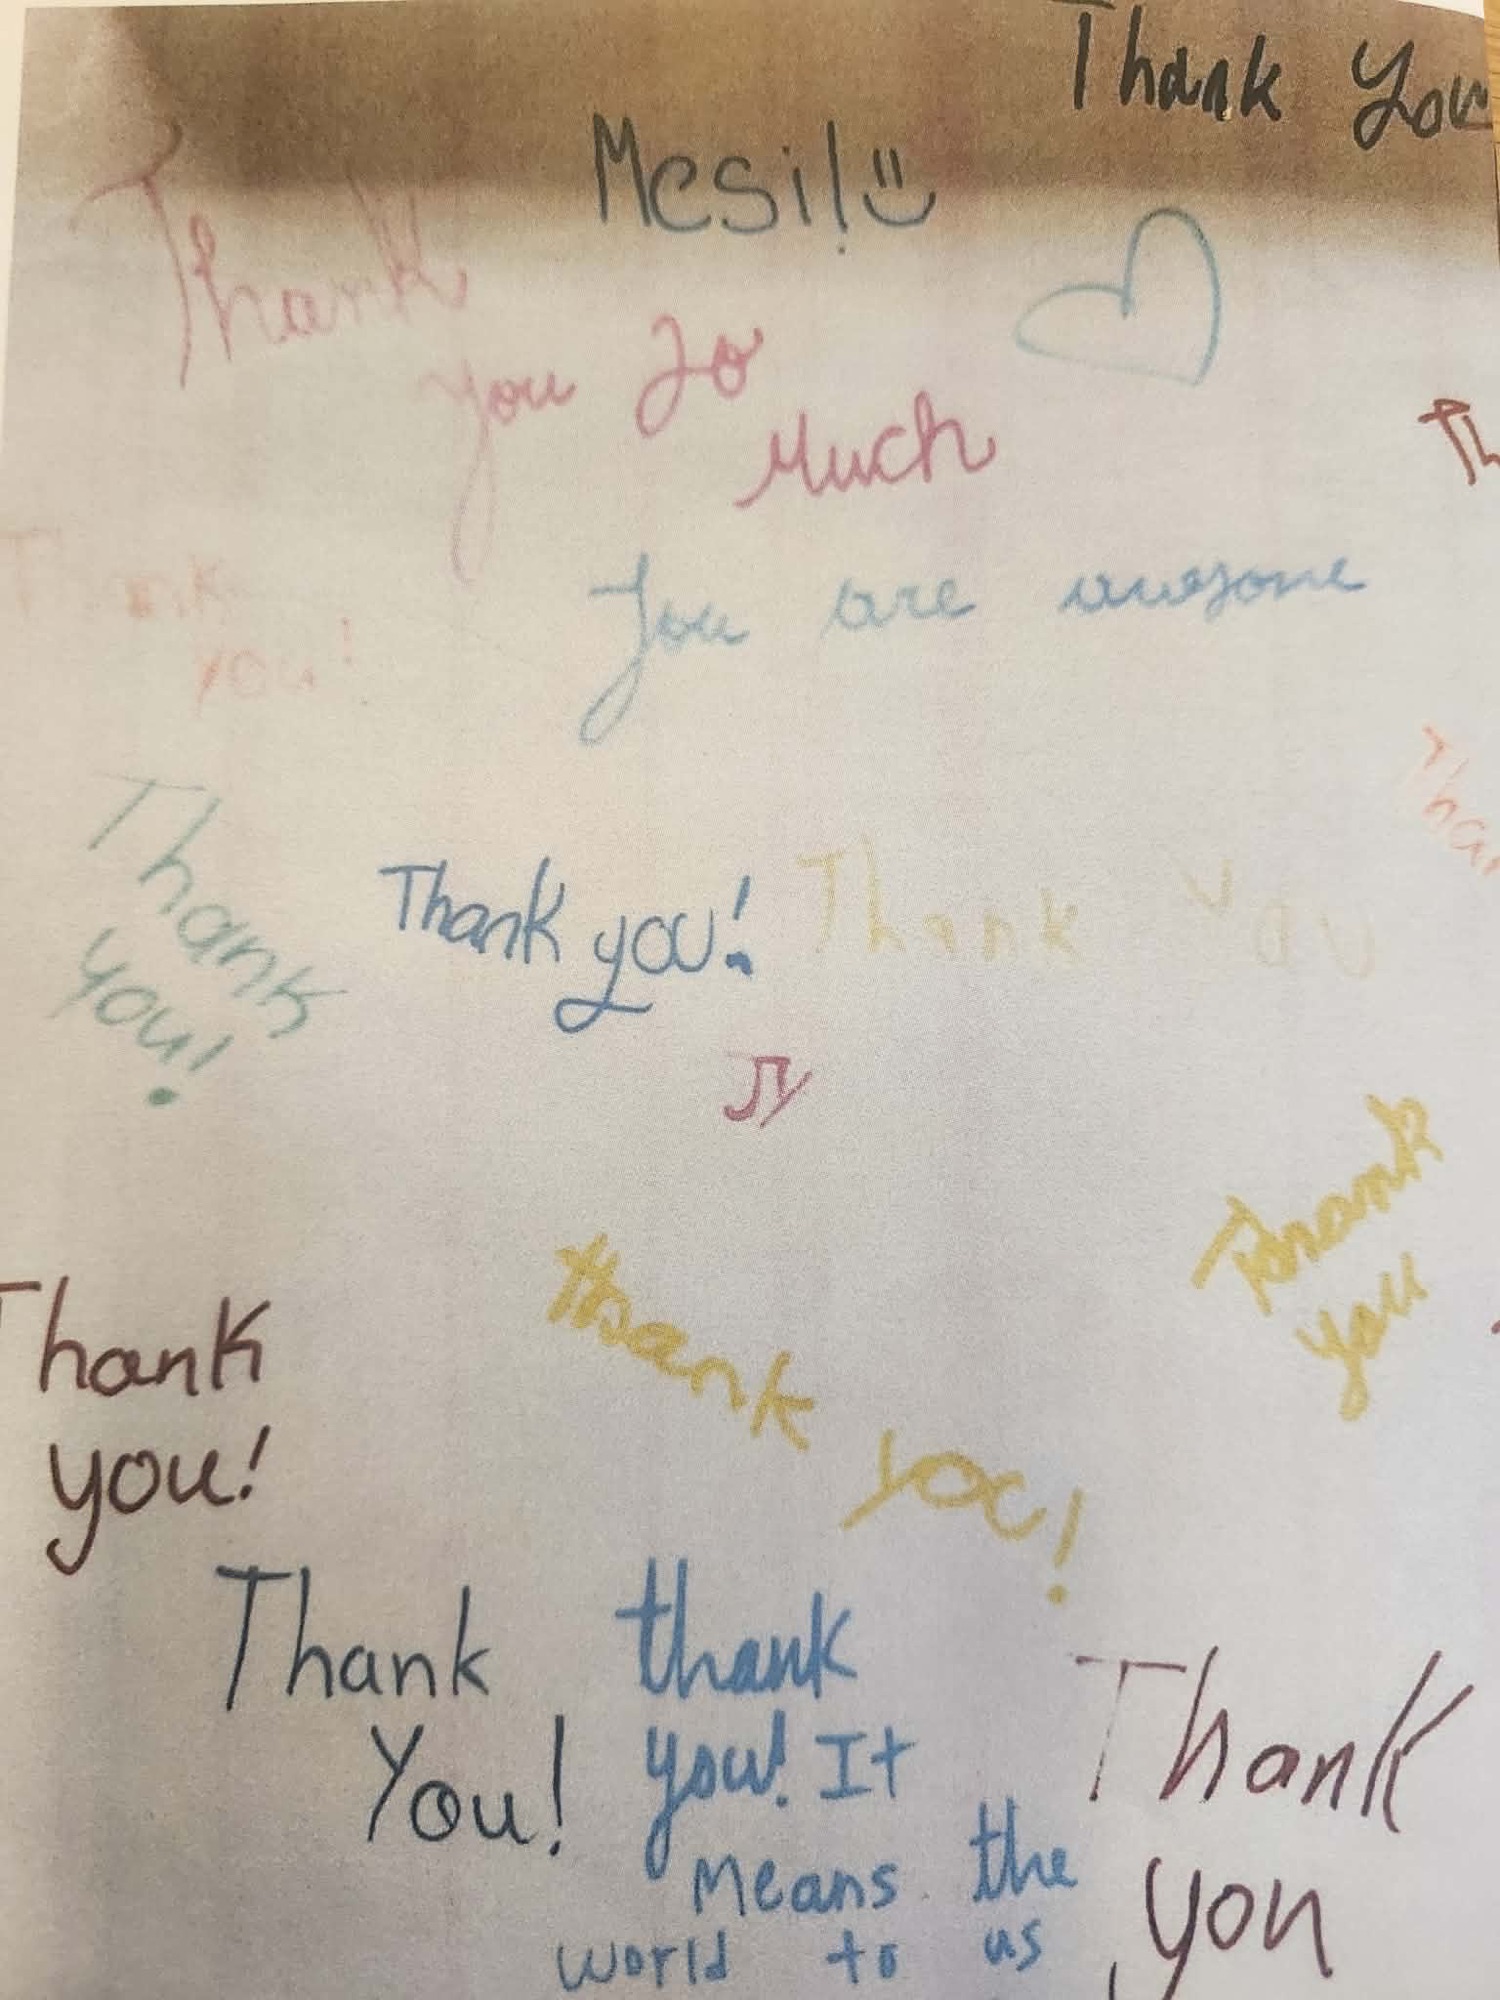 Thank You
Mesi!
Thank
you so
Much
Th
Thank
you!
You are awesome
Thank
you!
Thank you!
Thank You
Than
Thank
you
thank
you!
Thank
you!
Thank
You!
thank
you! It
Means the
world to us
Thank
you